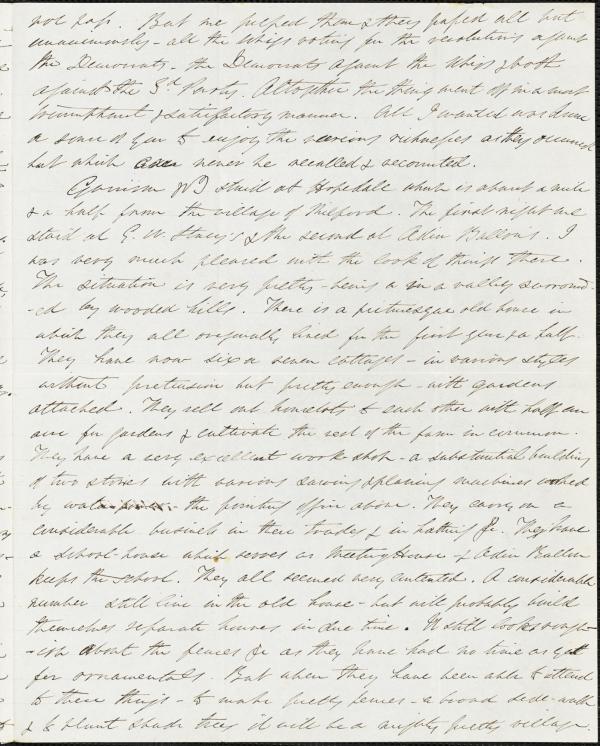 not pass. But we helped them & they passed all but
unanimously - all the Whigs voting for the resolutions against
the Democrats - the Democrats against the Whigs & both
against the 3d Party. Altogether the thing went off in a most
triumphant & satisfactory manner. All I wanted was some
a some of you to enjoy the various richnesses as they occurred
but which can never be recalled & recounted.
Garrison & I staid at Hopedale which is about a mile
& a half from the village of Milford. The first night we
staid at E. W. Stacy's & the second at Adin Ballou's. I
was very much pleased with the look of things there.
The situation is very pretty - being a in a valley surround-
-ed by wooded hills. There is a picturesque old house in
which they all originally lived for the first year & a half.
They have now six or seven cottages - in various styles
without pretension but pretty enough - with gardens
attached. They sell out houselots to each other with half an
acre for gardens & cultivate the rest of the farm in common.
They have a very excellent work-shop - a substantial building
of two stories with various sawing & planing machines worked
by water - the printing office above. They carry on a
considerable business in these trades & in hatting &c. They have
a school-house which serves as Meeting House - & Adin Ballou
keeps the school. They all seemed very contented. A considerable
number still live in the old house - but will probably build
themselves separate houses in due time. It still looks rough-
-ish about the fences &c as they have had no time as yet
for ornamentals. But when they have been able to attend
to these things - to make pretty fences - a broad side-walk
& to plant shade trees it will be a mighty pretty village.